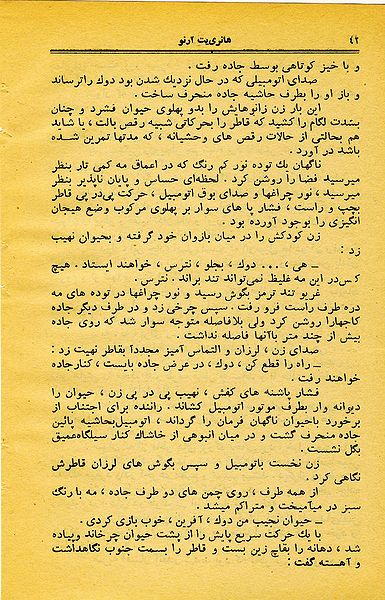 ۴۲ هانری‌یت آرنو
و با خیز کوتاهی بوسط جاده رفت.
صدای اتومبیلی که در حال نزدیک شدن بود دوك راترساند
و باز او را بطرف حاشیه جاده منحرف ساخت.
این بار زن زانوهایش را بدو پهلوی حیوان فشرد و چنان
بشدت لگام را کشید که قاطر را بحرکاتی شبیه رقص باله، یا شاید
هم بحالتی از حالات رقص های وحشیانه، که مدتها تمرین شده
باشد در آورد.
ناگهان یك توده نور کم رنگ که در اعماق مه کمی تار بنظر
میرسید فضا را روشن کرد. لحظه‌ای حساس و پایان ناپذیر بنظر
میرسید، نور چراغها و صدای بوق اتومبیل، حرکت پی‌در پی قاطر
بچپ و راست، فشار پا های سوار بر پهلوی مرکوب وضع هیجان
انگیزی را بوجود آورده بود.
زن کودکش را در میان بازوان خود گرفته و بحیوان نهیب
زد:
ــ هی،... دوك، بجلو، نترس، خواهند ایستاد. هیچ
کس‌در این مه غلیظ نمی‌تواند تند براند. نترس.
غریو تند ترمز بگوش رسید و نور چراغها در توده های مه
دره طرف راست فرو رفت. سپس چرخی زد و در طرف دیگر جاده
کاجهارا روشن کرد ولی بلافاصله متوجه سوار شد که روی جاده
بیش از چند متر باآنها فاصله نداشت.
صدای زن، لرزان و التماس آمیز مجدداً بقاطر نهیت زد:
ــ راه را قطع کن، دوك، در عرض جاده بایست، کنارجاده
خواهند رفت.
فشار پاشنه های کفش، نهیب پی در پی زن، حیوان را
دیوانه وار بطرف موتور اتومبیل کشاند. راننده برای اجتناب از
برخورد باحیوان ناگهان فرمان را گرداند، اتومبیل‌بحاشیه پائین
جاده منحرف گشت و در میان انبوهی از خاشاك کنار سیلگاه‌عمیق
بگل نشست.
زن نخست باتومبیل و سپس بگوش های لرزان قاطرش
نگاهی کرد.
از همه طرف، روی چمن های دو طرف جاده، مه با رنگ
سبز در میآمیخت و متراکم میشد.
ــ حیوان نجیب من دوك، آفرین، خوب بازی کردی.
با یك حرکت سریع پایش را از پشت حیوان چرخاند وپیاده
شد، دهانه را بقاچ زین بست و قاطر را بسمت جنوب نگاهداشت
و آهسته گفت: